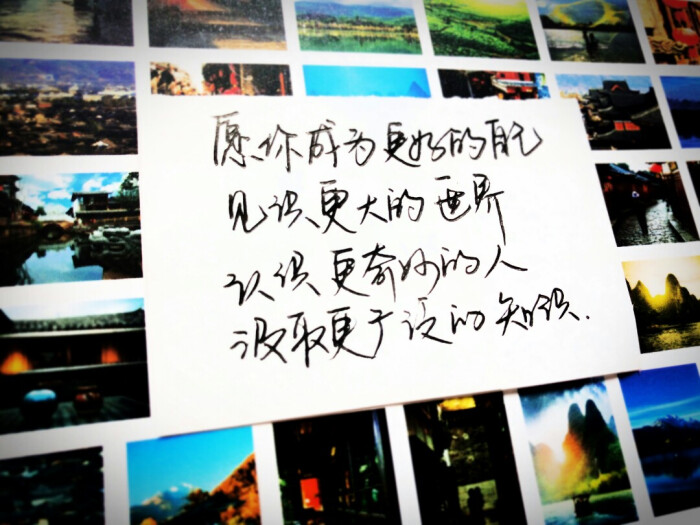 愿你成为更好的自己
见识更大的世界
认识更奇妙的人
汲取更广泛的知识.